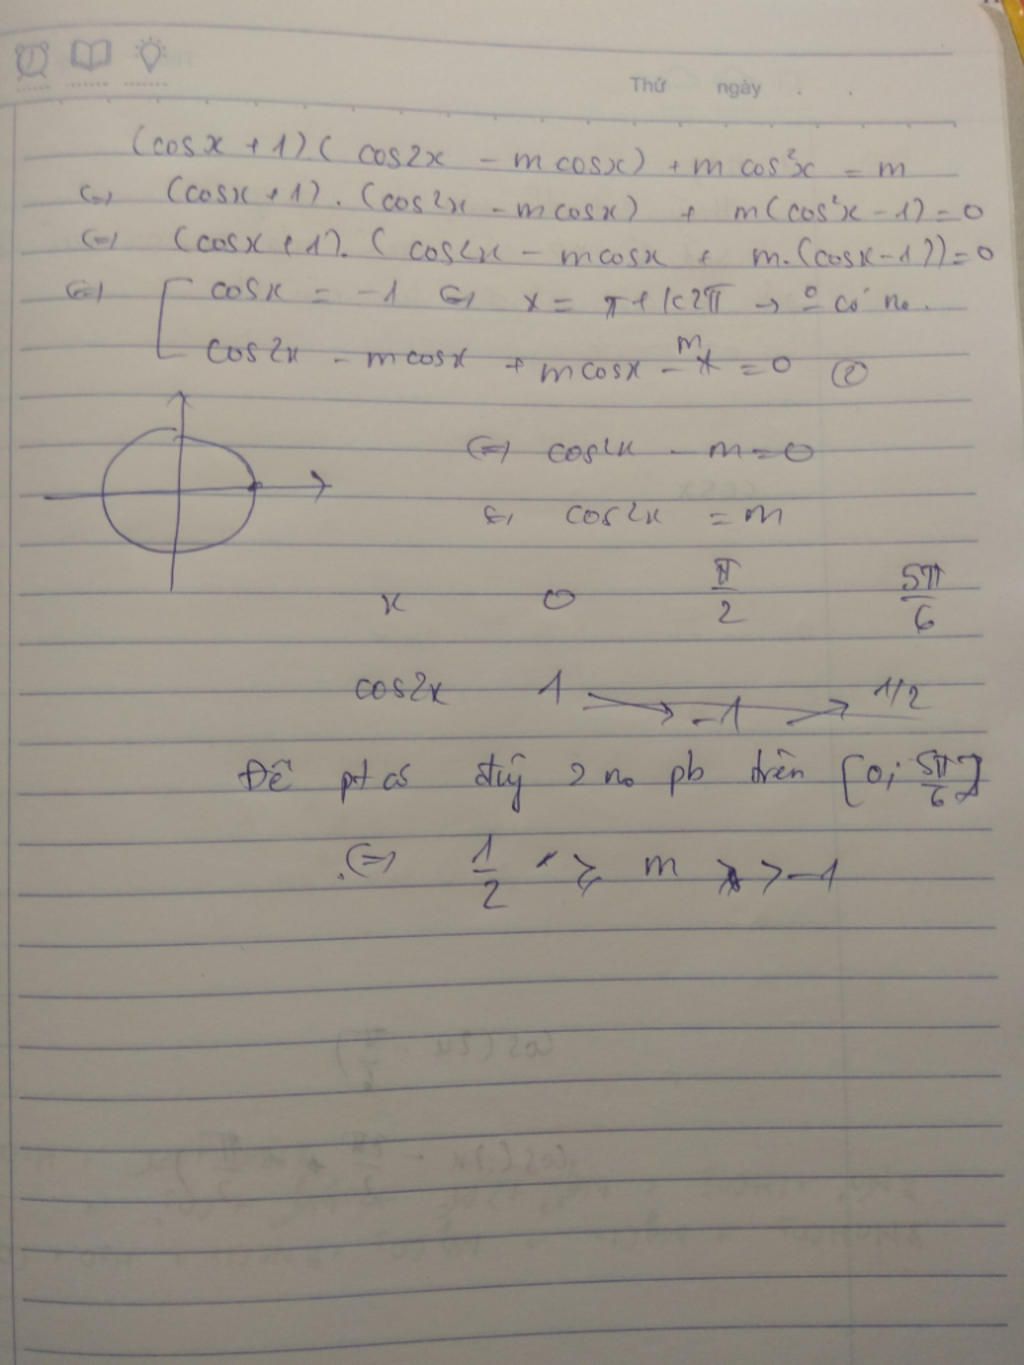 Thứ ngày . .
(cosx + 1)( cos2x - m cosx) + m cos²x = m
(=) (cosx + 1) . (cos2x - m cosx) + m(cos²x - 1) = 0
(=) (cosx + 1). ( cos2x - mcosx + m.(cosx - 1)) = 0
(=) cosx = -1 (=) x = π + k2π → có no.
cos2x - mcosx + mcosx - m = 0 (2)
(=) cos2x - m = 0
(=) cos2x = m
x 0 π/2 5π/6
cos2x 1 -1 1/2
Để pt có đúng 2 no pb trên [0; 5π/6]
(=) 1/2 ≥ m > -1